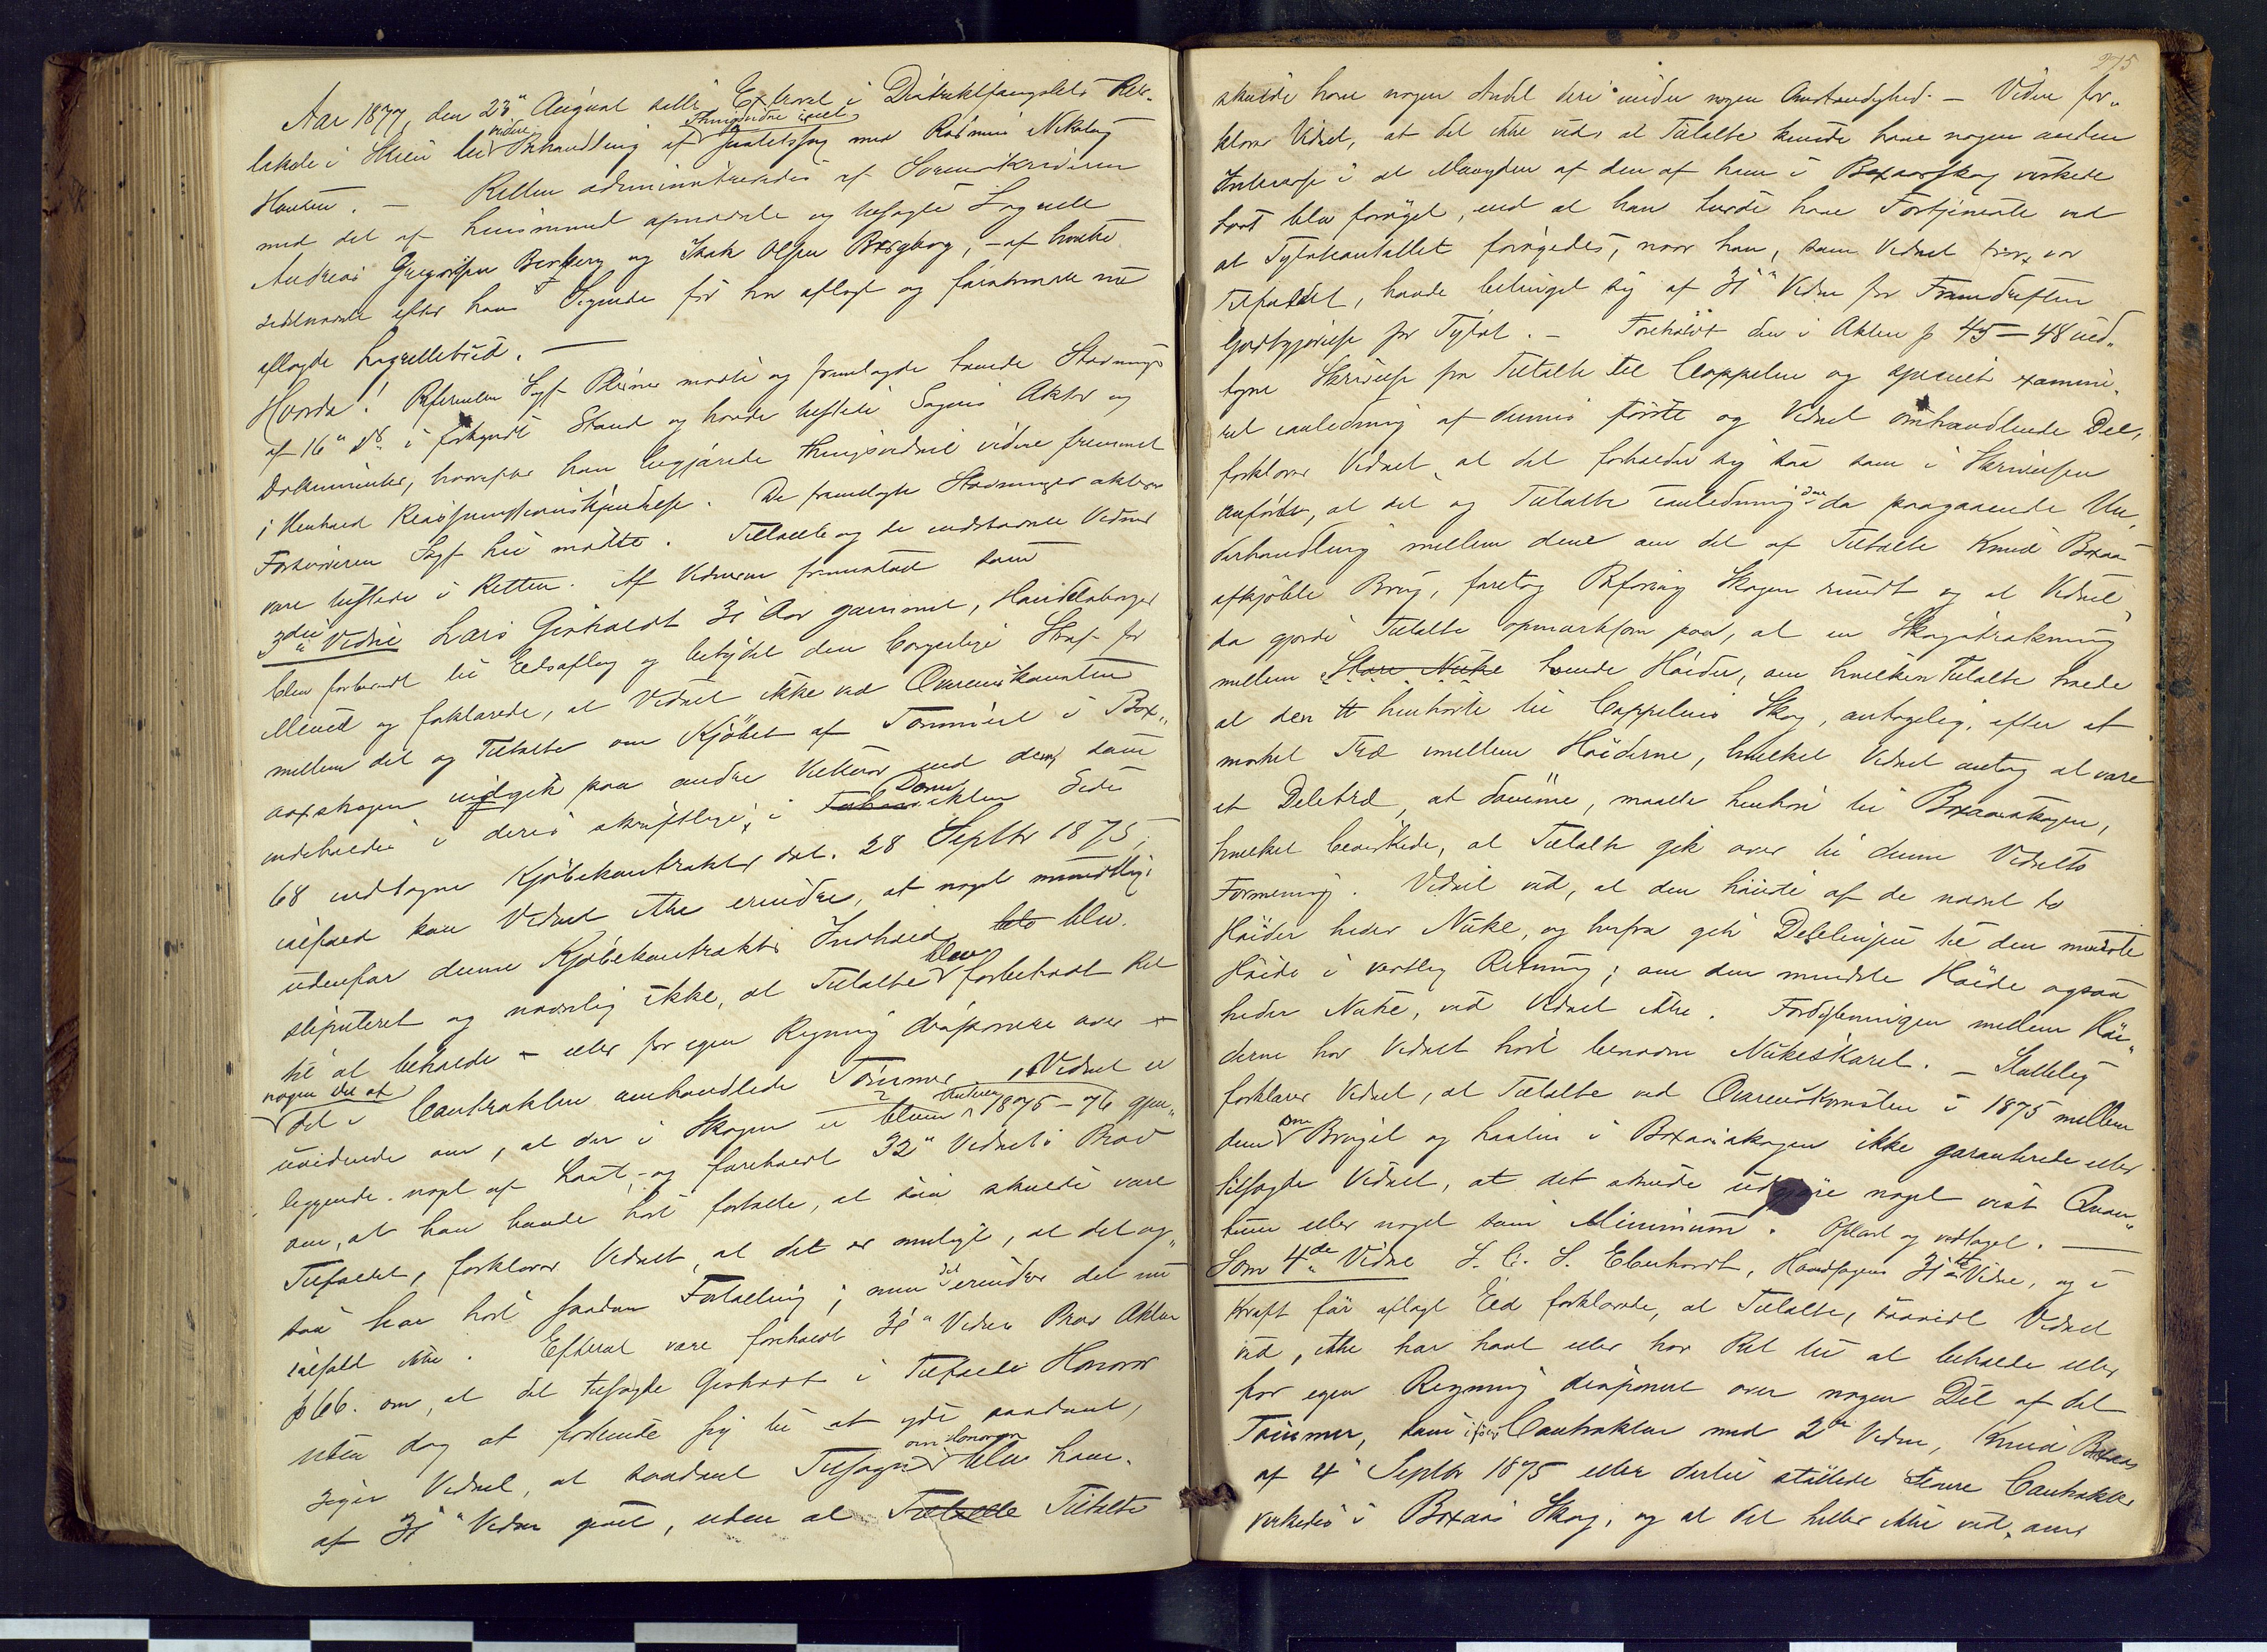 Aar 1877, den 23de August sattes Extraret i Distriktfængslets Ret-
lokale i Skien til videre Behandling af Thingsvidne i Justitssag mod Rasmus Nikolay
Hansen. — Retten administreredes af Sorenskriveren
med det af huusmand opnævnte og besagte Lagrette
Andreas Gregersen Berberg og Isak Olsen Bergborg, — af hvilke
sidstnævnte efter hans Sigende før har aflagt og førstnævnte nu
aflagde Lagretteeed. —
Hvorda! Referenten Sagf. mødte og fremlagde tvende Stævninger
af 16de ds. i forkyndt Stand og havde beskikket Sagens Akter og
Dokumenter, hvorefter han begjærede Thingsvidnet videre fremmet
i Henhold. De fremlagte Stævninger aktere
Forsvareren Sagf. mødte. Tiltalte og de indstævnte Vidner
vare tilstede i Retten. Af Vidnerne fremstod som
3die Vidne Lars 31 Aar gammel, Handelsborger
blev forberedt til Edsaflæg og betydet den borgerlige Straf for
Meened og forklarede, at Vidnet ikke ved Overenskomsten
mellem det og Tiltalte om Kjöbet af Tömmeret i Box-
aasskogen indgik paa andre Vilkaar end dem, som
indeholdes i deres skriftlige, i Domakten Side
68 indtagne Kjöbekontrakt dat. 28 Septbr 1875,
ialfald kan Vidnet ikke erindre, at noget mundtlig
udenfor denne Kjöbekontrakts Indhold blev
stipuleret og navnlig ikke, at Tiltalte blev forbeholdt Ret
til at beholde — eller for egen Regning disponere over —
nogen Del af
det i Contrakten omhandlede Tömmer. Vidnet er
uvidende om, at der i Skogen Vinteren 1875–76 gjen-
liggende noget af Last, og foreholdt 32te Vidnets Prov
om, at han havde hört fortælle, at saa skulde være
Tilfældet, forklarer Vidnet, at det er muligt, at det og-
saa har hört saadan Fortælling; men det erindrer det nu
ialfald ikke. Efterat være foreholdt 31te Vidnes Prov Akten
p 66. om, at det tilsagde i Tilfælde Honorar
uden dog at forbinde sig til at yde saadant,
siger Vidnet, at saadant Tilsagn om Honorar blev ham
af 31te Vidne givet, uden at Tiltalte Tiltalte
275
skulde have nogen Andel deri under nogen Omstændighed. — Videre for-
klarer Vidnet, at det ikke veds at Tiltalte kunde have nogen anden
Interesse i at Mængden af den af ham i Boxaasskog virkede
Last blev foröget, end at han burde have Fortjeneste ved
at Tylvteantallet forögedes, naar han, som Vidnet tror, var
Tilfældet, havde betinget sig af 31te Vidne for Fremdriften
Godtgjörelse pr Tylvt. — Foreholdt den i Akten p 45–48 ind-
tagne Skrivelse fra Tiltalte til Cappelen og specielt exami-
ret ianledning af dennes förste og Vidnet omhandlende Del,
forklarer Vidnet, at det forholder sig saa som i Skrivelsen
anförte, at det og Tiltalte ianledning den da paagaaende Un-
derhandling mellem dem om det af Tiltalte Knud Boxaas
afkjöbte Brug, foretog Befaring Skogen rundt og at Vidnet
da gjorde Tiltalte opmærksom paa, at en Skogstrækning
mellem Store Nuke tvende Höider, om hvilken Tiltalte troede
at den henhörte til Cappelens Skog, antagelig, efter et
mærket Træ imellem Höiderne, hvilket Vidnet antog at være
et Deletræ, at dömme, maatte henhöre til Boxaasskogen,
hvilket bevirkede, at Tiltalte gik over til denne Vidnets
Formening. Vidnet ved, at den höieste af de nævnte to
Höider heder Nuke, og herfra gik Delelinjen til den mindste
Höide i vestlig Retning; om den mindste Höide ogsaa
heder Nuke, ved Vidnet ikke. Fordybningen mellem Höi-
derne har Vidnet hört benævne Nukeskaret. — Slutteligt
forklarer Vidnet, at Tiltalte ved Overenskomsten i 1875 mellem
dem om Bruget og Lasten i Boxaasskogen ikke garanterede eller
tilsagde Vidnet, at det skulde udgjöre noget vist Qvan-
tum eller noget som Minimum. Oplæst og vedtaget. —
Som 4de Vidne Eberhardt, Hovedsagens 31te Vidne, og i
Kraft för aflagt Eed forklarede, at Tiltalte, saavidt Vidnet
ved, ikke har havt eller har Ret til at beholde eller
for egen Regning disponere over nogen Del af det
Tömmer, som ifölge Contrakten med 2det Vidne, Knud Boxaas
af 4de Septbr 1875 eller dertil stöttede senere Contrakter
virkedes i Boxaas Skog, og at det heller ikke ved, om